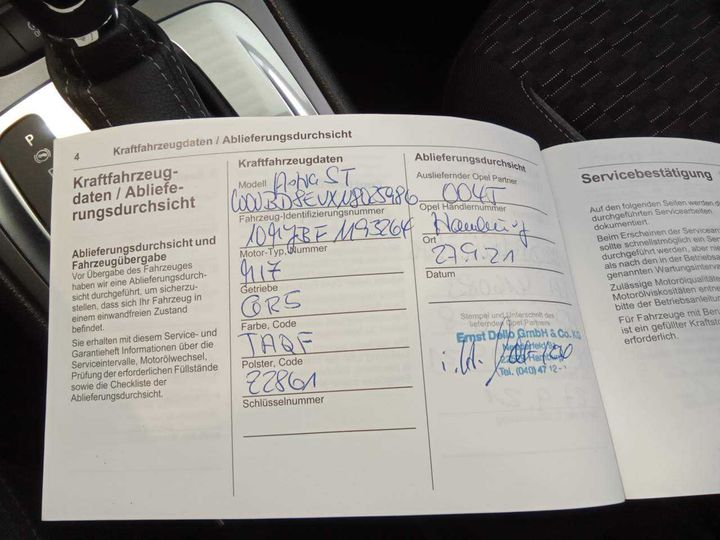 4
Kraftfahrzeugdaten / Ablieferungsdurchsicht
Kraftfahrzeug-
daten / Abliefe-
rungsdurchsicht
Ablieferungsdurchsicht und
Fahrzeugübergabe
Vor Übergabe des Fahrzeuges
haben wir eine Ablieferungsdurch-
sicht durchgeführt, um sicherzu-
stellen, dass sich Ihr Fahrzeug in
einem einwandfreien Zustand
befindet.
Sie erhalten mit diesem Service- und
Garantieheft Informationen über die
Serviceintervalle, Motorölwechsel,
Prüfung der erforderlichen Füllstände
sowie die Checkliste der
Ablieferungsdurchsicht.
Kraftfahrzeugdaten
Modell Astra ST
Fahrzeug-Identifizierungsnummer
Motor-Typ, Nummer
Getriebe
Farbe, Code
TAQF
Polster, Code
22861
Schlüsselnummer
Ablieferungsdurchsicht
Ausliefernder Opel Partner
Opel Händlernummer
Hamburg
Ort
27.9.21
Datum
Stempel und Unterschrift des
liefernden Opel Partners
Ernst Dello GmbH & Co. KG
Tel. (040) 47 12 -
Servicebestätigung
Auf den folgenden Seiten werden d
durchgeführten Servicearbeiten
dokumentiert.
Beim Erscheinen der Servicean
sollte schnellstmöglich ein Ser
durchgeführt werden, aber nie
als nach den in der Betriebsa
genannten Wartungsinterva
Zulässige Motorölqualität
Motorölviskositäten entne
bitte der Betriebsanleitun
Für Fahrzeuge mit Ben
ist ein gefüllter Kraftst
erforderlich.
P